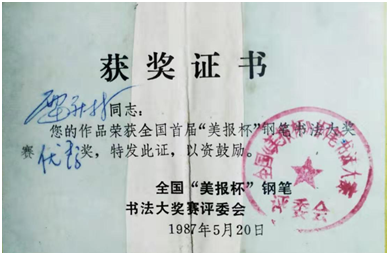 获奖证书
同志:
您的作品荣获全国首届“美报杯”钢笔书法大奖
赛优秀奖,特发此证,以资鼓励。
全国“美报杯”钢笔
书法大奖赛评委会
1987年5月20日